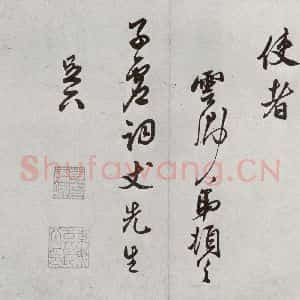 使者
雲卿小弟頓首
子虛詞丈先生
Shufawang.CN